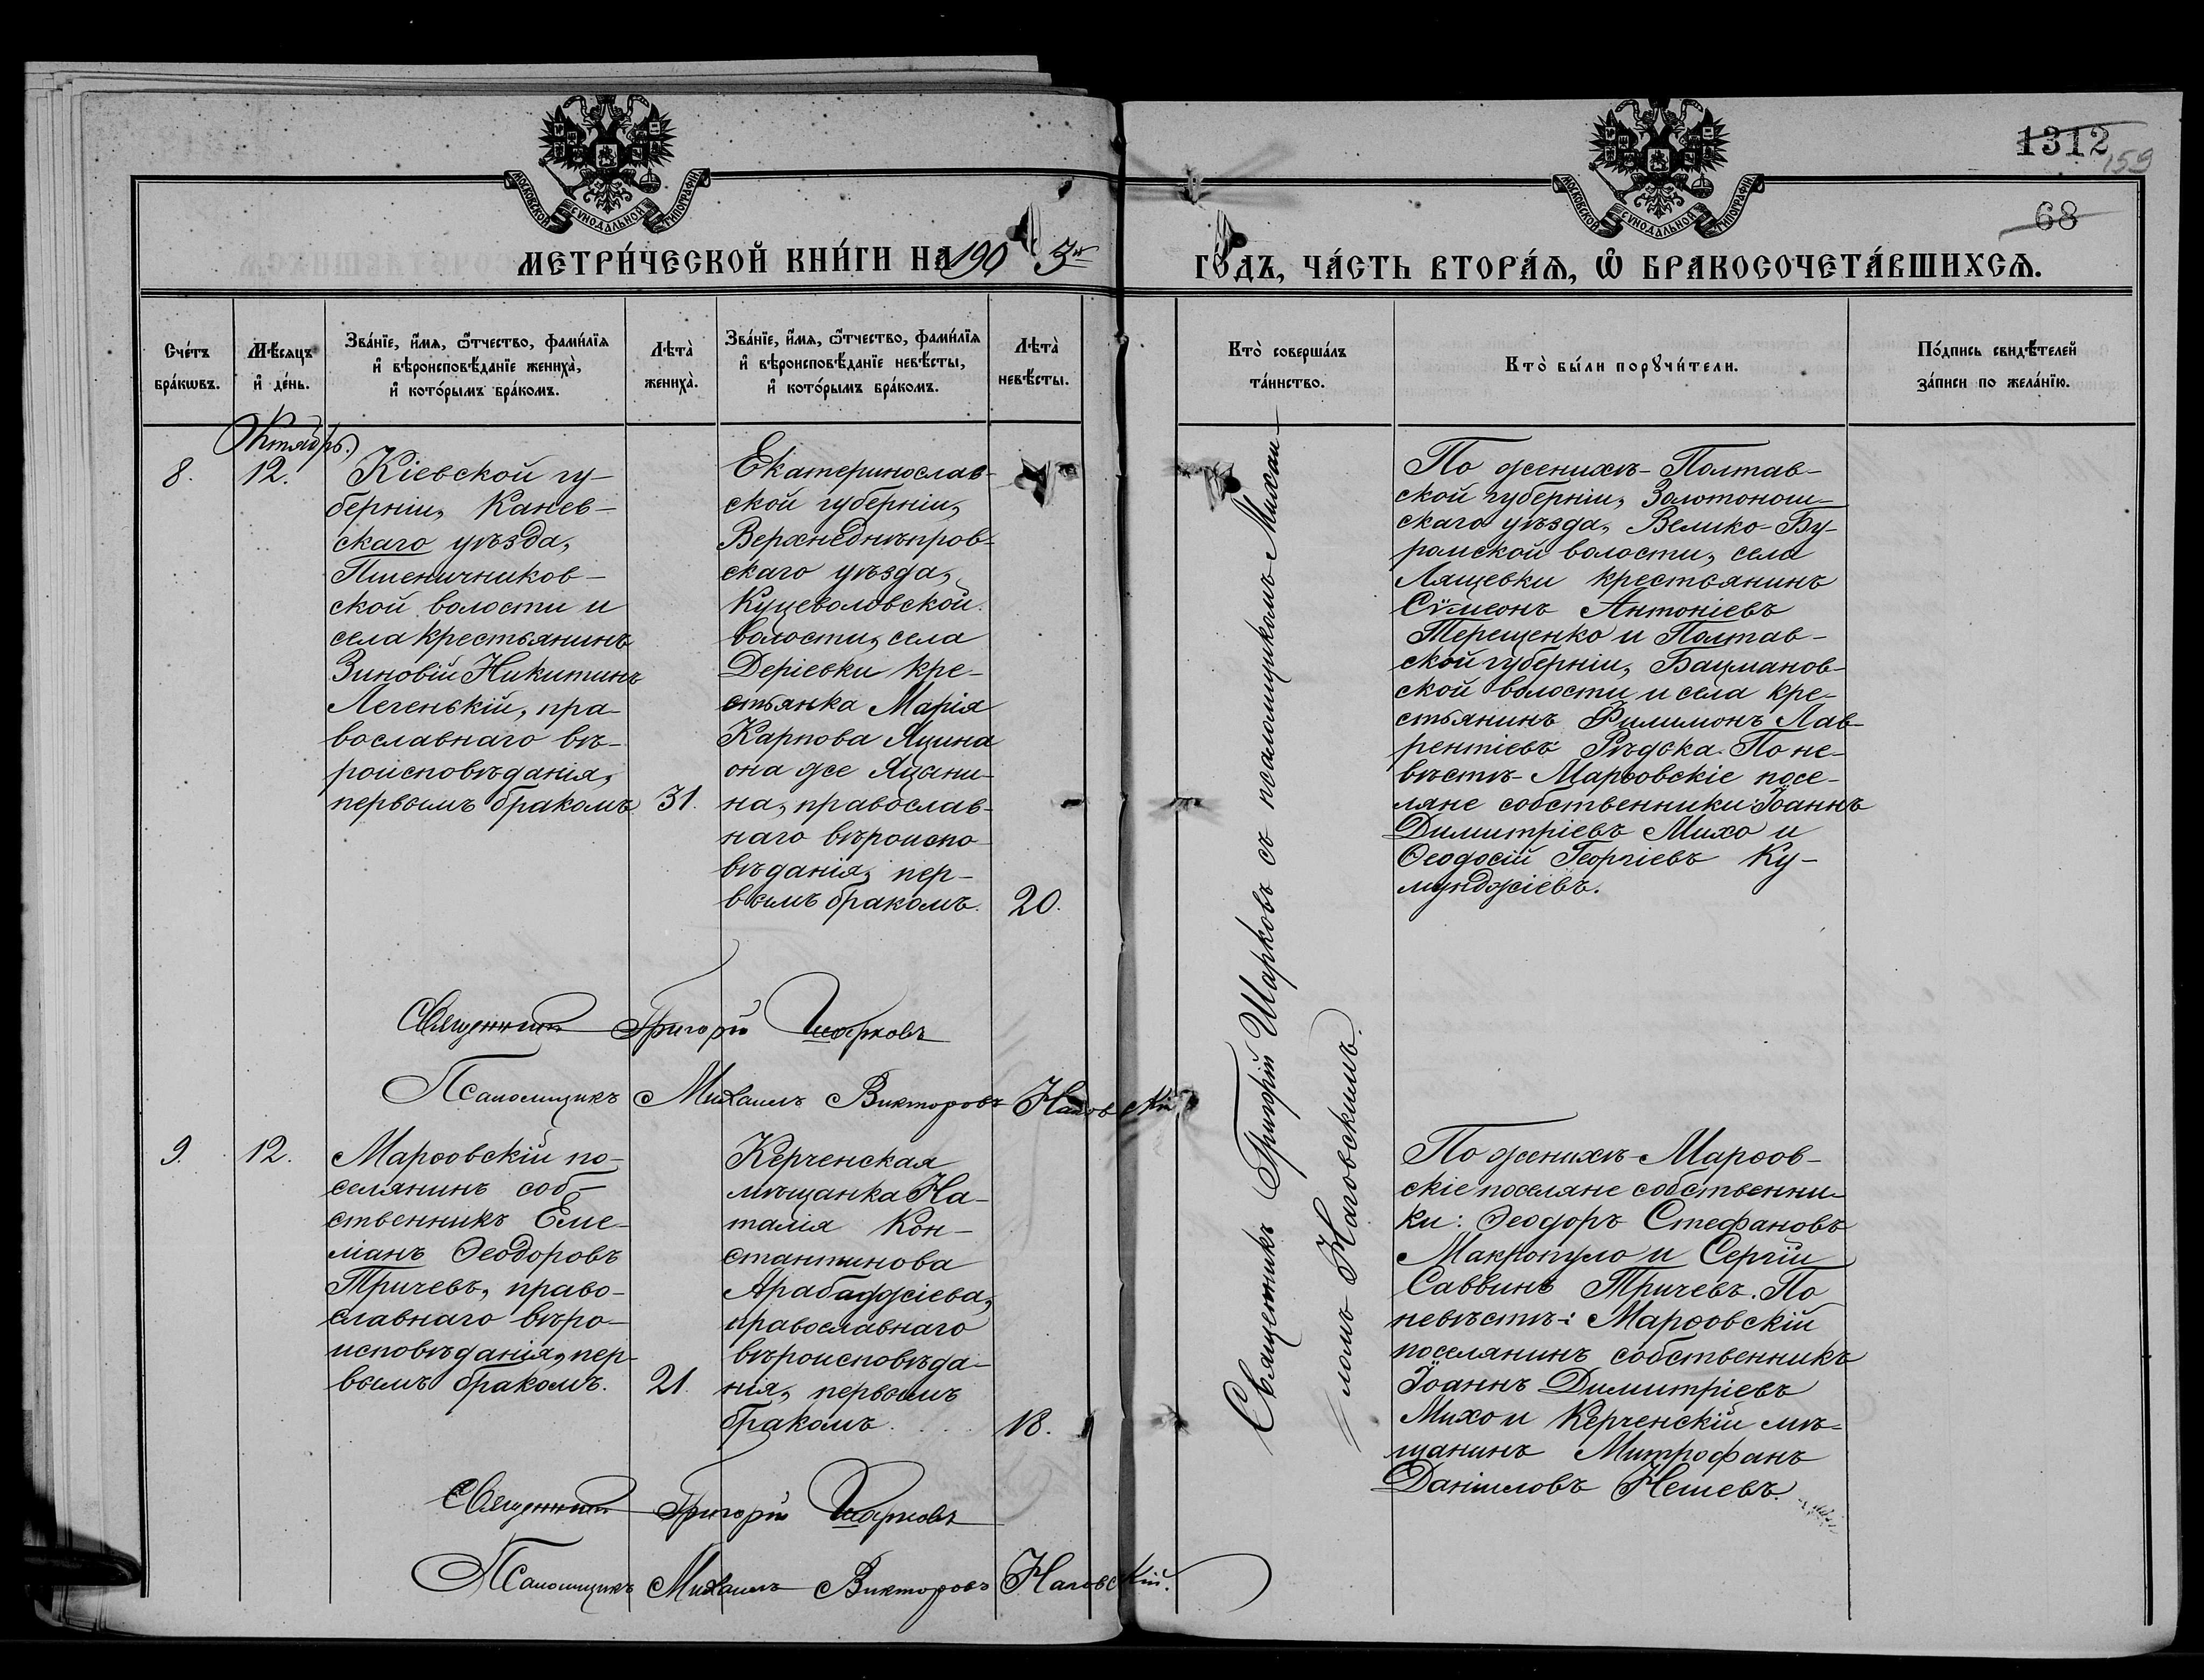 1312
159
68
МОСКОВСКОЙ СѴНОДАЛЬНОЙ ТИПОГРАФІИ
МОСКОВСКОЙ СѴНОДАЛЬНОЙ ТИПОГРАФІИ
МЕТРИ́ЧЕСКОЙ КНИ́ГИ НА 1903й
ГО́ДЪ, ЧА́СТЬ ВТОРА́Ѧ, Ѽ БРАКОСОЧЕТА́ВШИХСѦ.
Сче́тъ бра́кѡвъ.
Мѣ́сяцъ и҆ де́нь.
Зва́нїе, и҆́мѧ, ѻ҆́тчество, фами́лїѧ
и҆ вѣроисповѣ́данїе жениха̀,
и҆ кото́рымъ бра́комъ.
Лѣта̀ жениха̀.
Зва́нїе, и҆́мѧ, ѻ҆́тчество, фами́лїѧ
и҆ вѣроисповѣ́данїе невѣ́сты,
и҆ кото́рымъ бра́комъ.
Лѣта̀ невѣ́сты.
Кто̀ соверша́лъ та́инство.
Кто̀ бы́ли порꙋчи́тели.
По́дпись свидѣ́телей за́писи по жела́нїю.
Октябрь
8.
12.
Кіевской гу-
берніи, Канев-
скаго уѣзда,
Пшеничников-
ской волости и
села крестьянинъ
Зиновій Никитинъ
Легенькій, пра-
вославнаго вѣ-
роисповѣданія,
первымъ бракомъ
31.
Екатеринослав-
ской губерніи,
Верхнеднѣпров-
скаго уѣзда,
Куцеволовской
волости, села
Деріевки кре-
стьянка Марія
Карпова Яцина
она же Яцени-
на, православ-
наго вѣроиспо-
вѣданія, пер-
вымъ бракомъ.
20.
Священникъ Григорій Шарковъ съ псаломщикомъ Михаи-
ломъ Наговскимъ.
По женихѣ - Полтав-
ской губерніи, Золотонош-
скаго уѣзда, Велико-Бу-
ромской волости, села
Лящевки крестьянинъ
Сѵмеонъ Антоніевъ
Терещенко и Полтав-
ской губерніи, Бацманов-
ской волости и села кре-
стьянинъ Филимонъ Лав-
рентіевъ Рѣдька. По не-
вѣстѣ - Марѳовскіе посе-
ляне собственники: Іоаннъ
Димитріевъ Михо и
Ѳеодосій Георгіевъ Ку-
мунджіевъ.
Священникъ Григорій Шарковъ
Псаломщикъ Михаилъ Викторовъ Наговскій
9.
12.
Марѳовскій по-
селянинъ соб-
ственникъ Еме-
ліанъ Ѳеодоровъ
Тричевъ, право-
славнаго вѣро-
исповѣданія, пер-
вымъ бракомъ.
21.
Керченская
мѣщанка На-
талія Кон-
стантинова
Арабаджіева,
православнаго
вѣроисповѣда-
нія, первымъ
бракомъ.
18.
По женихѣ - Марѳов-
скіе поселяне собственни-
ки: Ѳеодоръ Стефановъ
Макропуло и Сергій
Саввинъ Тричевъ. По
невѣстѣ: Марѳовскій
поселянинъ собственникъ
Іоаннъ Димитріевъ
Михо и Керченскій мѣ-
щанинъ Митрофанъ
Даніиловъ Нешевъ.
Священникъ Григорій Шарковъ
Псаломщикъ Михаилъ Викторовъ Наговскій.